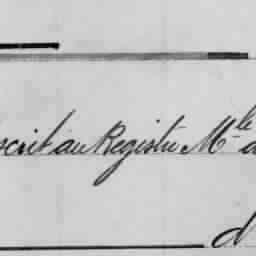 scrit au Registre Mle d
d